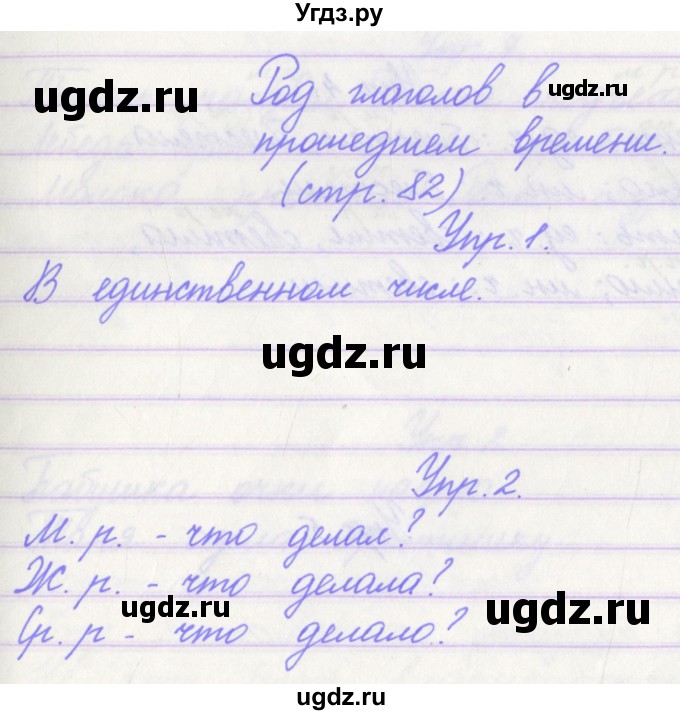 Угдз.ру
Род глаголов в
прошедшем времени.
(стр. 82)
Упр. 1.
В единственном числе.
Упр. 2.
М. р. - что делал?
Ж. р. - что делала?
Ср. р - что делало?
ugdz.ru
ugdz.ru
ugdz.ru
ugdz.ru
ugdz.ru
ugdz.ru